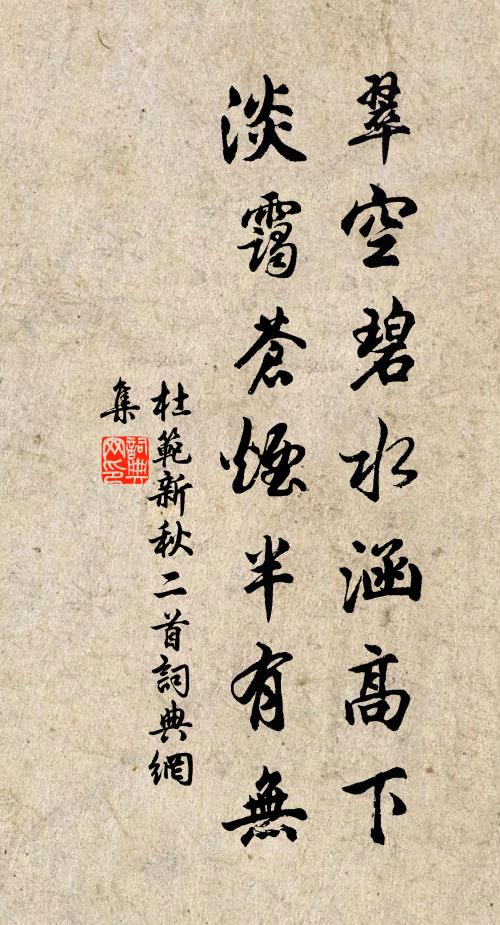 翠空碧水涵高下
淡靄蒼煙半有無
杜範新秋二首詞典網
集
詞典
网印